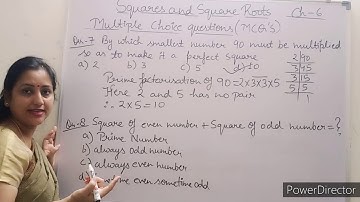 Squares and Square Roots Ch-6
Multiple Choice questions (MCQ's)
Qn.7 By which smallest number 90 must be multiplied
so as to make it a perfect square
a) 2 b) 3 c) 5 d) 10
Prime factorisation of 90 = 2×3×3×5
Here 2 and 5 has no pair
∴ 2×5 = 10
2 90
3 45
3 15
5 5
1
Qn.8 Square of even number + Square of odd number = ?
a) Prime Number
b) always odd number
c) always even number
even sometime odd
PowerDirector